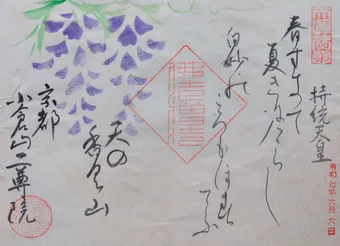 令和七年六月六日
持統天皇
春すぎて
夏きにけらし
白妙の
ころもほすてふ
天の
香久山
京都
小倉山二尊院